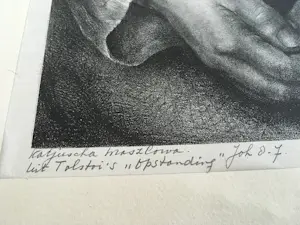 Katjuscha Maszlowa.
uit Tolstoi's „Opstanding" Joh 8-7.